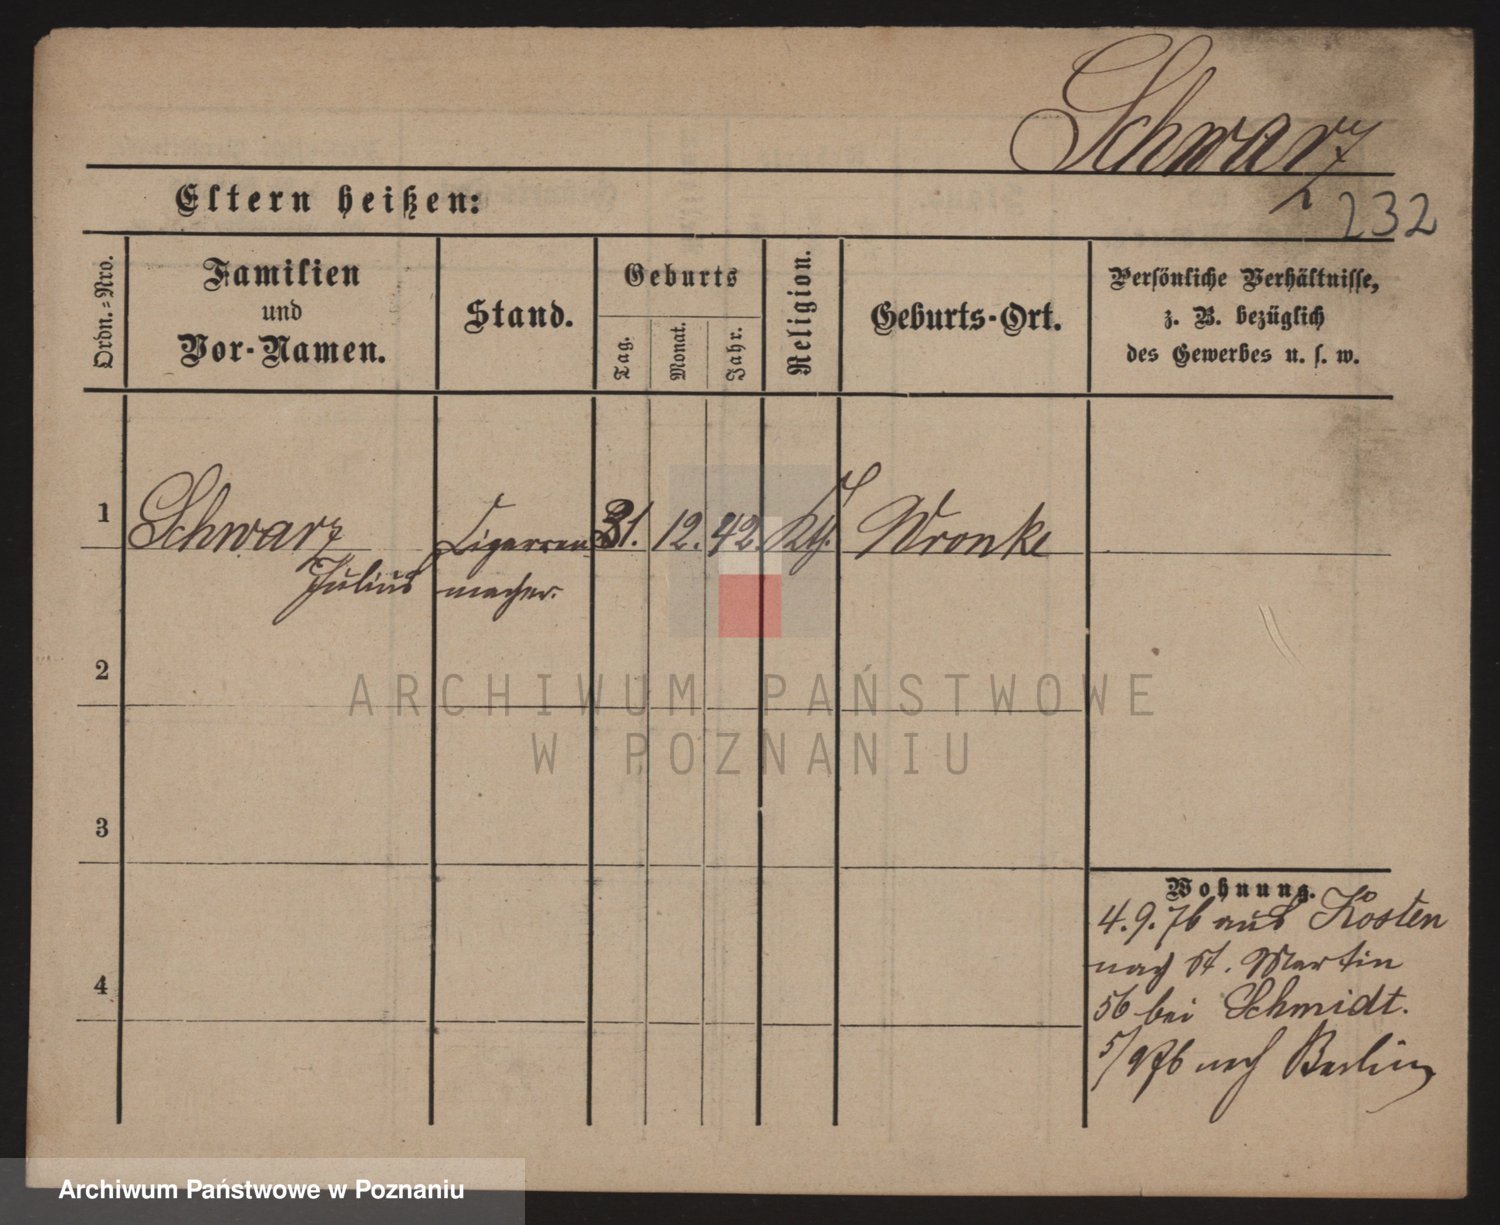 Schwarz
232
Eltern heißen:
Ordn.-Nro.
Familien
und
Vor-Namen.
Stand.
Geburts
Tag.
Monat.
Jahr.
Religion.
Geburts-Ort.
Persönliche Verhältnisse,
z. B. bezüglich
des Gewerbes u. s. w.
1
Schwarz
Julius
Cigarren
macher.
31.
12.
42.
Kth.
Wronke
2
3
4
Wohnung.
4.9.76 aus Kosten
nach St. Martin
56 bei Schmidt.
5/9 76 nach Berlin
ARCHIWUM PAŃSTWOWE
W POZNANIU
Archiwum Państwowe w Poznaniu